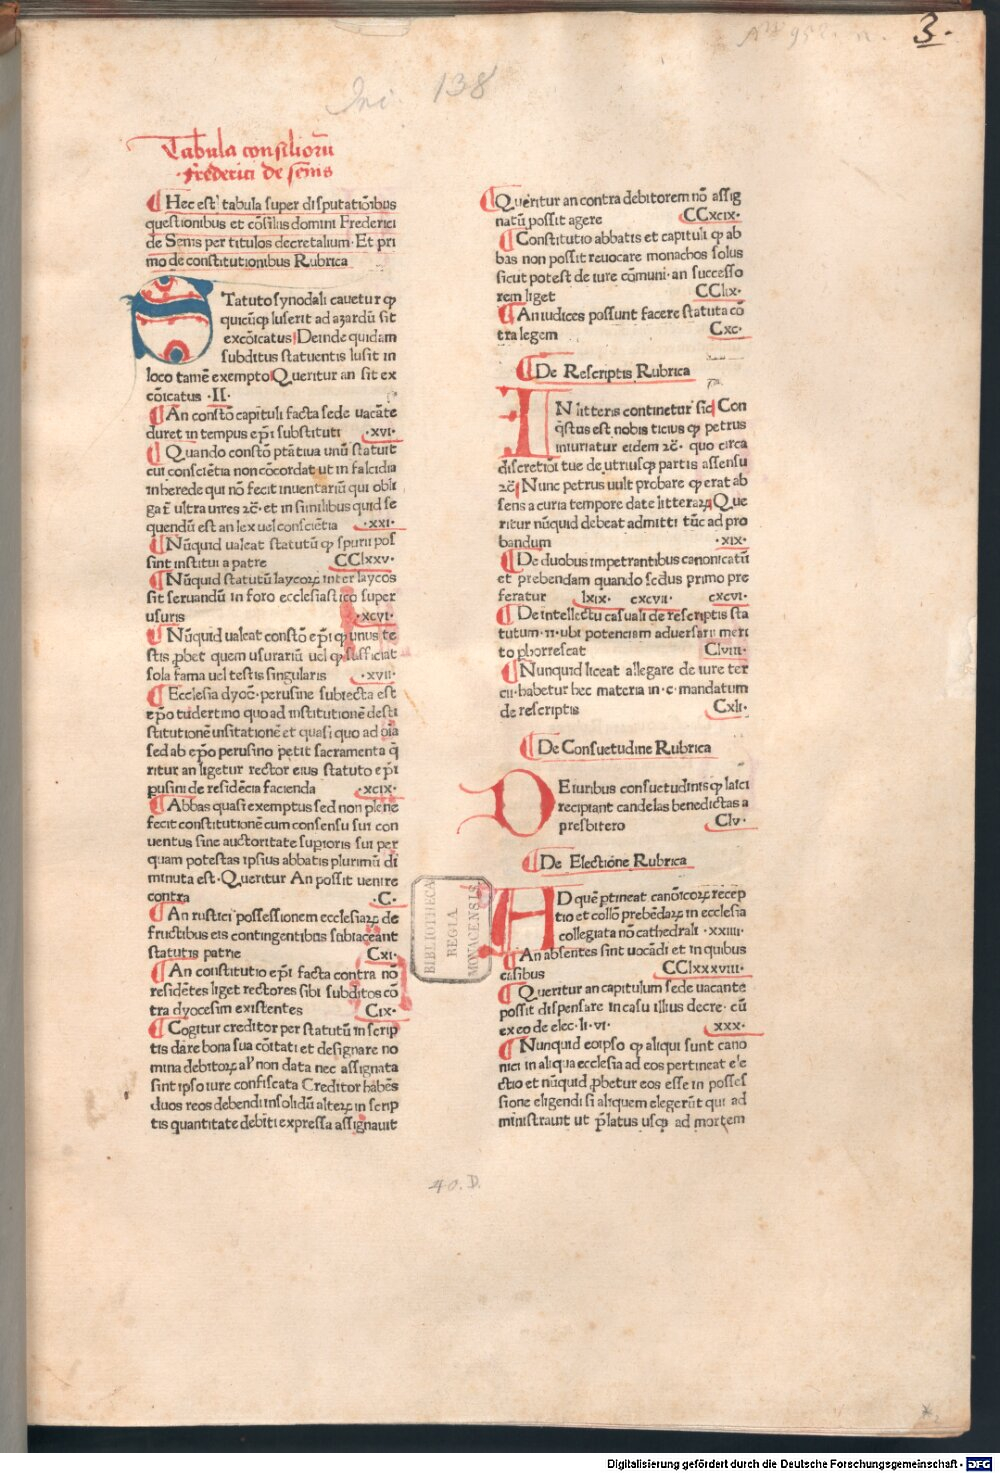 3.
Inc. 138
Tabula consilioru̅
frederici de senis
Hec est tabula super disputatio̅ibus
questionibus et co̅siliis domini Frederici
de Senis per titulos decretalium· Et pri
mo de constitutionibus Rubrica
STatuto synodali cauetur ꝙ
quicu̅ꝙ luserit ad azardu̅ sit
exco̅icatus Deinde quidam
subditus statuentis lusit in
loco tame̅ exempto Queritur an sit ex
co̅icatus ·II·
An consto̅ capituli facta sede uaca̅te
duret in tempus ep̅i substituti ·xvi·
Quando consto̅ pta̅tiua unu̅ statuit
cui conscie̅tia non co̅cordat ut in falcidia
in herede qui no̅ fecit inuentariu̅ qui obli
gat̅ ultra uires ⁊c̅· et in similibus quid se
quendu̅ est an lex uel conscie̅tia ·xxi·
Nu̅quid ualeat statutu̅ ꝙ spurii pos
sint institui a patre CClxxv·
Nu̅quid statutu̅ laycoꝝ inter laycos
sit seruandu̅ in foro ecclesiastico super
usuris ·xcvi·
Nu̅quid ualeat consto̅ ep̅i ꝙ unus te
stis ꝓbet quem usurariu̅ uel ꝙ sufficiat
sola fama uel testis singularis ·xvii·
Ecclesia dyoc̅· perusine subiecta est
ep̅o tudertino quo ad institutione̅ desti
stitutione̅ uisitatione̅ et quasi quo ad oi̅a
sed ab ep̅o perusino petit sacramenta q̅
ritur an ligetur rector eius statuto ep̅i
pusini de reside̅cia facienda ·xcix·
Abbas quasi exemptus sed non plene
fecit constitutione̅ cum consensu sui con
uentus sine auctoritate superioris sui per
quam potestas ipsius abbatis plurimu̅ di
minuta est· Queritur An possit uenire
contra ·C·
An rustici possessionem ecclesiaꝝ de
fructibus eis contingentibus subiaceant
statutis patrie Cxi·
An constitutio ep̅i facta contra no̅
reside̅tes liget rectores sibi subditos co̅
tra dyocesim existentes Cix·
Cogitur creditor per statutu̅ in scrip
tis dare bona sua co̅itati et designare no
mina debitoꝝ al' non data nec assignata
sint ipso iure confiscata Creditor habe̅s
duos reos debendi insolidu̅ alteꝝ in scrip
tis quantitate debiti expressa assignauit
Queritur an contra debitorem no̅ assig
natu̅ possit agere CCxcix·
Constitutio abbatis et capituli ꝙ ab
bas non possit reuocare monachos solus
sicut potest de iure co̅muni· an successo
rem liget CClix·
An iudices possunt facere statuta co̅
tra legem Cxc·
De Rescriptis Rubrica
IN litteris continetur sic Con
q̅stus est nobis ticius ꝙ petrus
iniuriatur eidem ⁊c̅· quo circa
discretioi̅ tue de utriusꝙ partis assensu
⁊c̅ Nunc petrus uult probare ꝙ erat ab
sens a curia tempore date litteraꝝ Que
ritur nu̅quid debeat admitti tu̅c ad pro
bandum ·xix·
De duobus impetrantibus canonicatu̅
et prebendam quando secus primo pre
feratur lxix· cxcvii· cxcvi·
De intellectu casuali de rescriptis sta
tutum·ii·ubi potenciam aduersarii meri
to phorrescat Clviii·
Nunquid liceat allegare de iure ter
cii·habetur hec materia in·c·mandatum
de rescriptis Cxli·
De Consuetudine Rubrica
DE iuribus consuetudinis ꝙ laici
recipiant candelas benedictas a
presbitero Clv·
De Electione Rubrica
AD que̅ ptineat cano̅icoꝝ recep
tio et collo̅ prebe̅daꝝ in ecclesia
collegiata no̅ cathedrali ·xxiiii·
An absentes sint uoca̅di et in quibus
casibus CClxxxviii·
Queritur an capitulum sede uacante
possit dispensare in casu illius decre· cu̅
ex eo de elec·li·vi· xxx·
Nunquid eoipso ꝙ aliqui sunt cano
nici in aliqua ecclesia ad eos pertineat ele
ctio et nu̅quid ꝓbetur eos esse in posses
sione eligendi si aliquem elegeru̅t qui ad
ministrauit ut p̅latus usꝙ ad mortem
BIBLIOTHECA
REGIA
MONACENSIS
40.D.
Digitalisierung gefördert durch die Deutsche Forschungsgemeinschaft - DFG